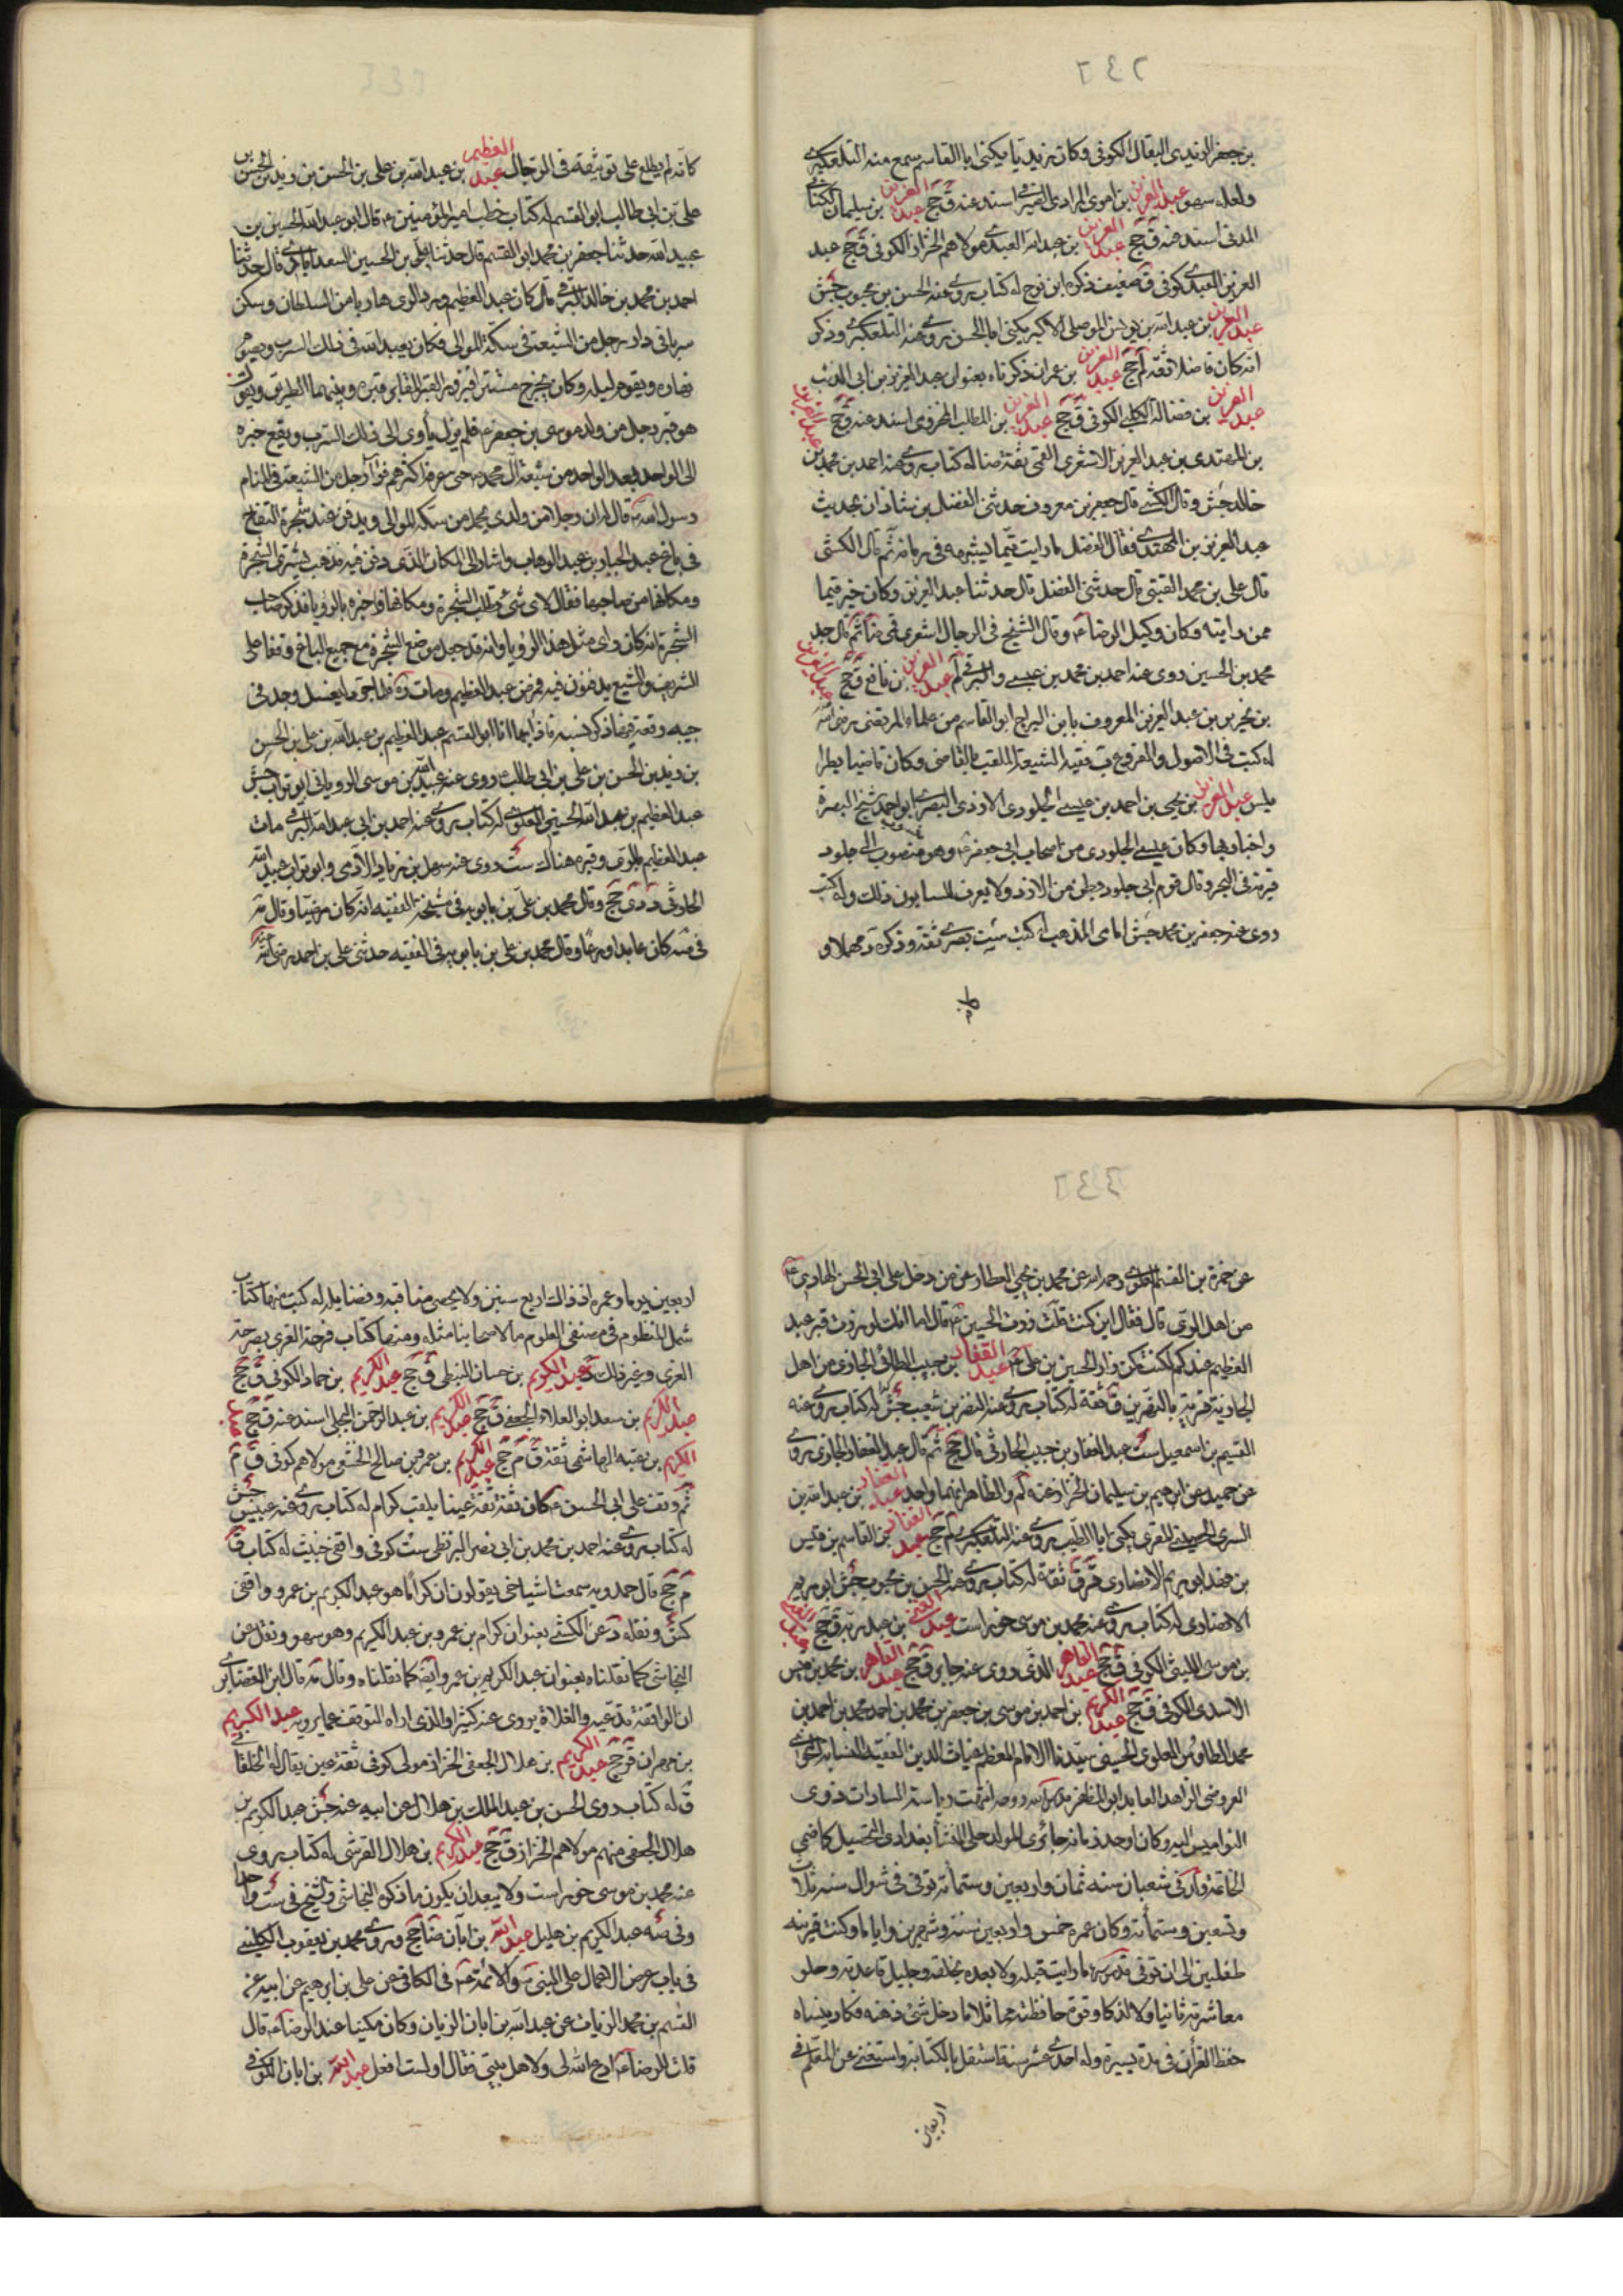 ٢٤٦
بن جعفر الزيدى البقال الكوفى وكان زيديا يكنى ابا القاسم سمع منه التلعكبرى
ولعله سهو عبد العزيز بن اموى المرادى الصيرفى اسند عنه ق جخ عبد العزيز بن سليمان الكنانى
المدنى اسند عنه ق جخ عبد العزيز بن عبد الله العبدى مولاهم الخزاز الكوفى ق جخ عبد
العزيز العبدى كوفى ق ضعيف ذكره ابن نوح له كتاب يروى عنه الحسن بن محبوب جش
عبد العزيز بن عبد الله بن يونس الموصلى الاكبر يكنى ابا الحسن يروى عنه التلعكبرى وذكر
انه كان فاضلا ثقة لم جخ عبد العزيز بن عمران ذكرناه بعنوان عبد العزيز بن ابى الذئب
عبد العزيز بن فضالة الكلبى الكوفى ق جخ عبد العزيز بن المطلب المخزومى اسند عنه ق جخ عبد العزيز
بن المهتدى بن عبد العزيز الاشعرى القمى ثقة ضا له كتاب يروى عنه احمد بن محمد بن
خالد جش وقال الكشى قال جعفر بن معروف حدثنى الفضل بن شاذان بحديث
عبد العزيز بن المهتدى فقال الفضل ما رايت قميا يشبهه فى زمانه ثم قال الكشى
قال على بن محمد القتيبى قال حدثنى الفضل قال حدثنا عبد العزيز وكان خير قمى
ممن رايته وكان وكيل الرضا ع وقال الشيخ فى الرجال اشعرى قمى ضا ثم قال جد
محمد بن الحسين روى عنه احمد بن محمد بن عيسى والبرقى لم عبد العزيز بن نافع ق جخ عبد العزيز
بن نحرير بن عبد العزيز المعروف بابن البراج ابو القاسم من غلمان المرتضى رضى الله
له كتب فى الاصول والفروع ب فقيه الشيعة الملقب بالقاضى وكان قاضيا بطرا
بلس عبد العزيز بن يحيى بن احمد بن عيسى الجلودى الازدى البصرى ابو احمد شيخ البصرة
واخباريها وكان عيسى الجلودى من اصحاب ابى جعفر ع وهو منسوب الى جلود
قرية فى البحر وقال قوم الى جلود بطن من الازد ولا يعرف النسابون ذلك وله كتب
روى عنه جعفر بن محمد جش امامى المذهب له كتب ست بصرى ثقة وذكره د مهملا و
كانه
كانه لم يطلع على توثيقه فى الرجال عبد العظيم بن عبد الله بن على بن الحسن بن زيد بن الحسن بن
على بن ابى طالب ابو القسم له كتاب خطب امير المؤمنين ع قال ابو عبد الله الحسين بن
عبيد الله حدثنا جعفر بن محمد ابو القسم قال حدثنا على بن الحسين السعدابادى قال حدثنا
احمد بن محمد بن خالد البرقى قال كان عبد العظيم ورد الرى هاربا من السلطان وسكن
سربا فى دار رجل من الشيعة فى سكة الموالى فكان يعبد الله فى ذلك السرب ويصوم
نهاره ويقوم ليله وكان يخرج مستترا فيزور القبر المقابل قبره وبينهما الطريق ويقول
هو قبر رجل من ولد موسى بن جعفر ع فلم يزل يأوى الى ذلك السرب ويقع خبره
الى الواحد بعد الواحد من شيعة آل محمد ص حتى عرفه اكثرهم فرآى رجل من الشيعة فى المنام
رسول الله ص قال له ان رجلا من ولدى يحمل من سكة الموالى ويدفن عند شجرة التفاح
فى باغ عبد الجبار بن عبد الوهاب واشار الى المكان الذى دفن فيه فذهب ليشترى الشجرة
ومكانها من صاحبها فقال لاى شئ تطلب الشجرة ومكانها فاخبره بالرؤيا فذكر صاحب
الشجرة انه كان راى مثل هذا الرؤيا وانه قد جعل موضع الشجرة مع جميع الباغ وقفا على
الشريف والشيع يدفنون فيه فمرض عبد العظيم ومات ره فلما جرد ليغسل وجد فى
جيبه رقعة فيها ذكر نسبه فاذا فيها انا ابو القسم عبد العظيم بن عبد الله بن على بن الحسن
بن زيد بن الحسن بن على بن ابى طالب روى عنه عبيد الله بن موسى الرويانى ابو تراب جش
عبد العظيم بن عبد الله الحسنى العلوى له كتاب يروى عنه احمد بن ابى عبد الله البرقى مات
عبد العظيم بالرى وقبره هناك ست روى عنه سهل بن زياد الآدمى وابو تراب عبيد الله
الحارثى د دى جخ وقال محمد بن على بن بابويه فى مشيخة الفقيه انه كان مرضيا وقال صه
فى صه كان عابدا ورعا وقال محمد بن على بن بابويه فى الفقيه حدثنى على بن احمد رضى الله
عن حمزة بن القسم العلوى رحمه الله عن محمد بن يحيى العطار عمن دخل على ابى الحسن الهادى ع
من اهل الرى قال فقال اين كنت قلت زرت الحسين ع قال اما انك لو زرت قبر عبد
العظيم عندكم لكنت كمن زار الحسين بن على ع عبد الغفار بن حبيب الطائى الجازى من اهل
الجازية قرية بالنهرين ق ثقة له كتاب يروى عنه النضر بن شعيب جش له كتاب يروى عنه
القسم بن اسمعيل ست عبد الغفار بن حبيب الحارثى قال جخ ثم قال عبد الغفار الجازى روى
عن حميد عن ابرهيم بن سليمان الخزاز عنه لم والظاهر انهما واحد عبد الغفار بن عبد الله بن
السرى الحسينى المقرى يكنى ابا الطيب يروى عنه التلعكبرى لم جخ عبد الغفار بن القاسم بن قيس
بن فهد ابو مريم الانصارى ق ثقة له كتاب يروى عنه الحسن بن محبوب جش ابو مريم
الانصارى له كتاب يروى عنه محمد بن موسى خوراست عبد الغنى بن عبد ربه ق جخ عبد الغنى
بن موسى الليثى الكوفى ق جخ عبد القاهر الذى روى عنه جابر ق جخ عبد القاهر بن محمد بن قيس
الاسدى الكوفى ق جخ عبد الكريم بن احمد بن موسى بن جعفر بن محمد بن احمد محمد بن احمد بن
محمد الطاوس العلوى الحسنى سيدنا الامام المعظم غياث الدين الفقيه النسابة النحوى
العروضى الزاهد العابد ابو المظفر قدس الله روحه انتهت رياسة السادات ذوى
النواميس اليه وكان اوحد زمانه حائرى المولد حلى المنشأ بغدادى التحصيل كاظمى
الخاتمة ولد فى شعبان سنة ثمان واربعين وستمأته توفى فى شوال سنة ثلاث
وتسعين وستمأته وكان عمره خمس واربعين سنة وشهرين واياما وكنت قرينه
طفلين الى ان توفى قدس سره ما رايت قبله ولا بعده كخلقه وجميل قاعدته وحلو
معاشرته ثانيا ولا لذكائه وقوة حافظته مماثلا ما دخل شئ ذهنه فكاد ينساه
حفظ القرآن فى مدة يسيرة وله احدى عشر سنة اشتغل بالكتابة واستغنى عن المعلم فى
اربعين
اربعين يوما وعمره اذ ذاك اربع سنين ولا يحصى مناقبه وفضايله له كتب منها كتاب
شمل المنظوم فى مصنفى العلوم ما لاصحابنا مثله ومنها كتاب فرحة الغرى بصرحة
الغرى وغير ذلك د عبد الكريم بن حسان النبطى ق جخ عبد الكريم بن حماد الكوفى ق جخ
عبد الكريم بن سعد ابو العلاء الجعفى ق جخ عبد الكريم بن عبد الرحمن البجلى اسند عنه ق جخ عبد
الكريم بن عتبة الهاشمى ثقة ق م جخ عبد الكريم بن عمرو بن صالح الخثعمى مولاهم كوفى ق م
ثم وقف على ابى الحسن ع كان ثقة ثقة عينا يلقب كرام له كتاب يروى عنه عبيس جش
له كتاب يروى عنه احمد بن محمد بن ابى نصر البزنطى ست كوفى واقفى خبيث له كتاب ق
م جخ قال حمدويه سمعت اشياخى يقولون ان كراما هو عبد الكريم بن عمرو واقفى
كش ونقله د عن الكشى بعنوان كرام بن عمرو بن عبد الكريم وهو سهو ونقل عن
النجاشى كما نقلناه بعنوان عبد الكريم بن عمرو ايضه كما نقلناه وقال صه قال ابن الغضايرى
ان الواقفة تدعيه والغلاة يروى عنه كثيرا والذى اراه التوقف عما يرويه عبد الكريم
بن مهران ق جخ عبد الكريم بن هلال الجعفى الخزاز مولى كوفى ثقة عين يقال له الخلقانى
ق له كتاب روى الحسن بن عبد الملك بن هلال عن ابيه عنه جش عبد الكريم بن
هلال الجعفى منهم مولاهم الخزاز ق جخ عبد الكريم بن هلال القرشى له كتاب يروى
عنه محمد بن موسى خوراست ولا يبعد ان يكون ما ذكره النجاشى والشيخ فى ست واحدا
وفى صه عبد الكريم بن هليل عبد الله بن ابان ضا جخ وروى محمد بن يعقوب الكلينى
فى باب عرض الاعمال على النبى ص والائمة ع فى الكافى عن على بن ابرهيم عن ابيه عن
القسم بن محمد الزيات عن عبد الله بن ابان الزيات وكان مكينا عند الرضا ع قال
قلت للرضا ع ادع الله لى ولاهل بيتى فقال اولست افعل عبد الله بن ابان الكوفى